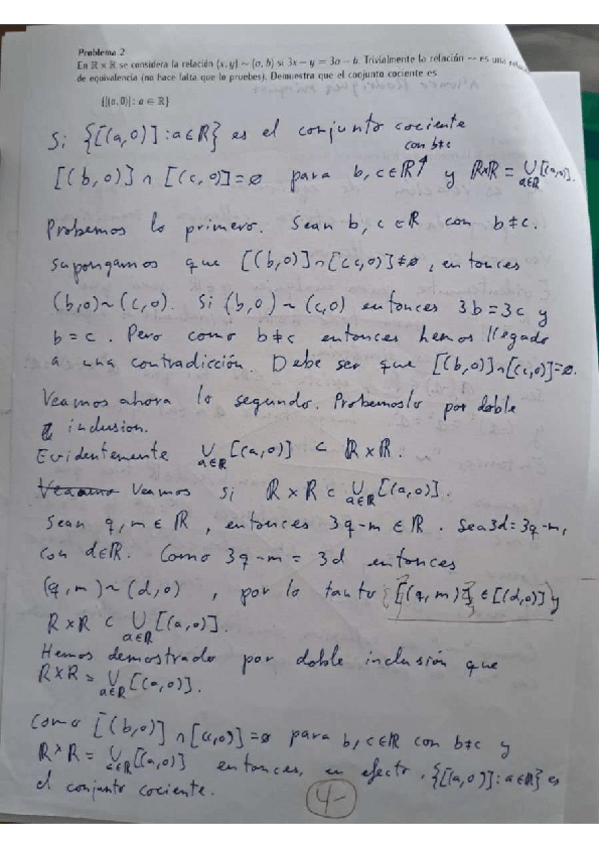 Problema 2
En ℝ × ℝ se considera la relación (x, y) ~ (a, b) si 3x − y = 3a − b. Trivialmente la relación ~ es una
de equivalencia (no hace falta que lo pruebes). Demuestra que el conjunto cociente es
{[(a, 0)] : a ∈ ℝ}
Si {[(a,0)] : a∈ℝ} es el conjunto cociente
con b≠c
[(b,0)] ∩ [(c,0)] = ∅ para b, c∈ℝ↑ y ℝ×ℝ = ∪ a∈ℝ [(a,0)].
Probemos lo primero. Sean b, c ∈ℝ con b≠c.
Supongamos que [(b,0)]∩[(c,0)]≠∅, entonces
(b,0)~(c,0). Si (b,0)~(c,0) entonces 3b=3c y
b=c. Pero como b≠c entonces hemos llegado
a una contradicción. Debe ser que [(b,0)]∩[(c,0)]=∅.
Veamos ahora lo segundo. Probemoslo por doble
inclusion.
Evidentemente ∪ a∈ℝ [(a,0)] ⊂ ℝ×ℝ.
Veamos si ℝ×ℝ ⊂ ∪ a∈ℝ [(a,0)].
Sean q, m ∈ ℝ, entonces 3q-m ∈ ℝ. Sea 3d=3q-m,
con d∈ℝ. Como 3q-m = 3d entonces
(q,m)~(d,0), por lo tanto {[(q,m)]} ∈[(d,0)] y
ℝ×ℝ ⊂ ∪ a∈ℝ [(a,0)].
Hemos demostrado por doble inclusión que
ℝ×ℝ = ∪ a∈ℝ [(a,0)].
Como [(b,0)] ∩ [(c,0)]=∅ para b, c∈ℝ con b≠c y
ℝ×ℝ = ∪ a∈ℝ [(a,0)] entonces, en efecto, {[(a,0)] : a∈ℝ} es
el conjunto cociente.
4-